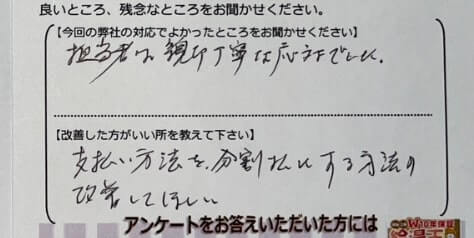 良いところ、残念なところをお聞かせください。
【今回の弊社の対応でよかったところをお聞かせください】
担当者は親切丁寧な応対でした。
【改善した方がいい所を教えて下さい】
支払い方法を、分割払いにする方法の
改善してほしい
アンケートをお答えいただいた方には
W10年保証